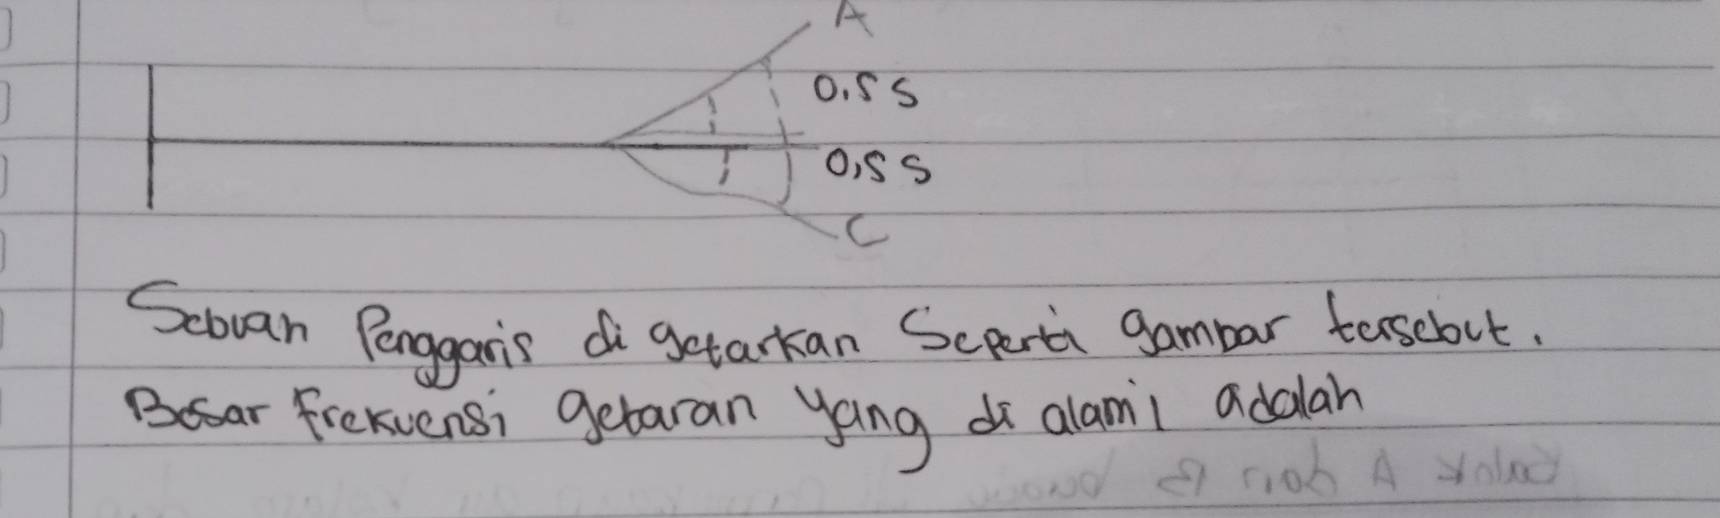 A
0.5 s
0,5 s
C
Sebuah Penggaris di getarkan Seperti gambar tersebut.
Besar Frekuensi getaran yang di alami adalah